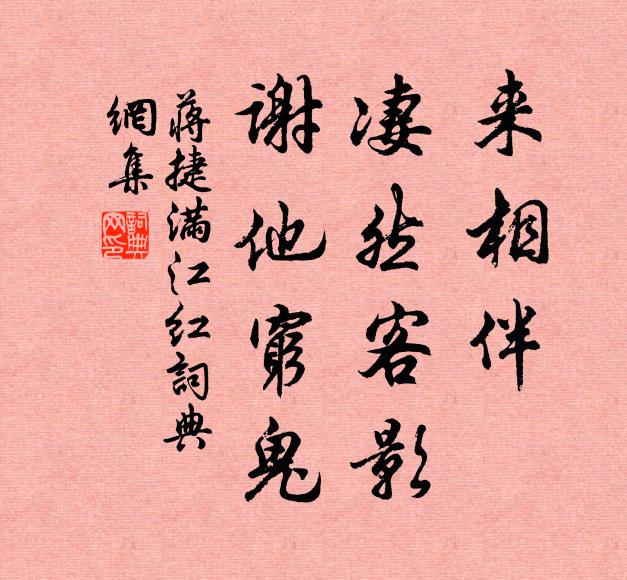 来相伴
凄然客影
谢他穷鬼
蒋捷满江红词典
网集
词典网印